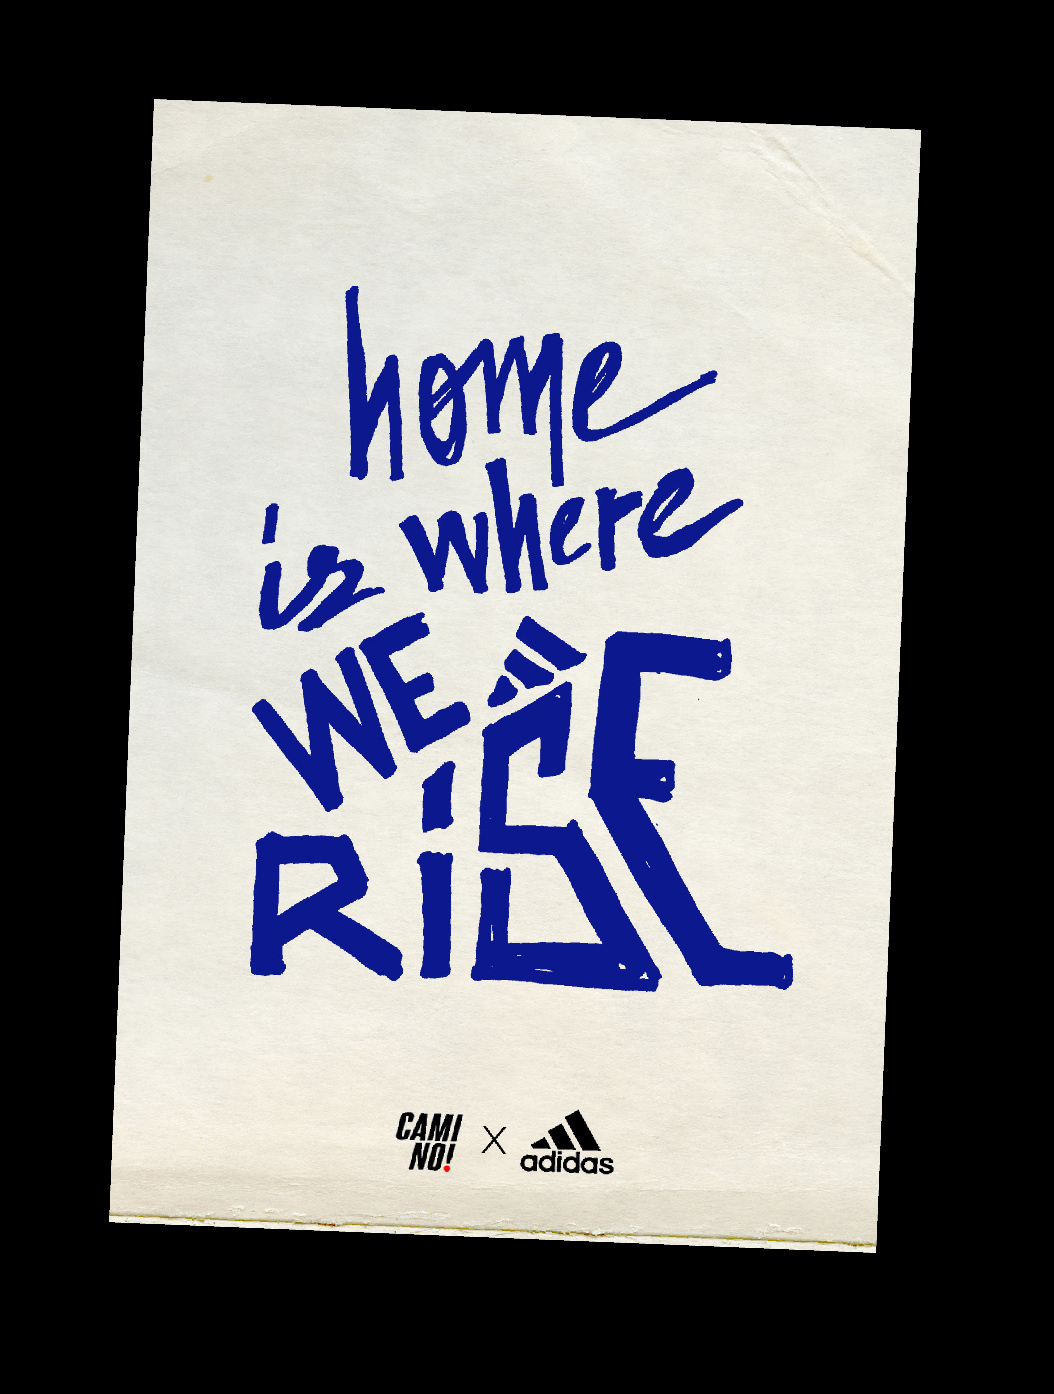 home
is where
WE
RiSE
CAMI
NO!
X
adidas